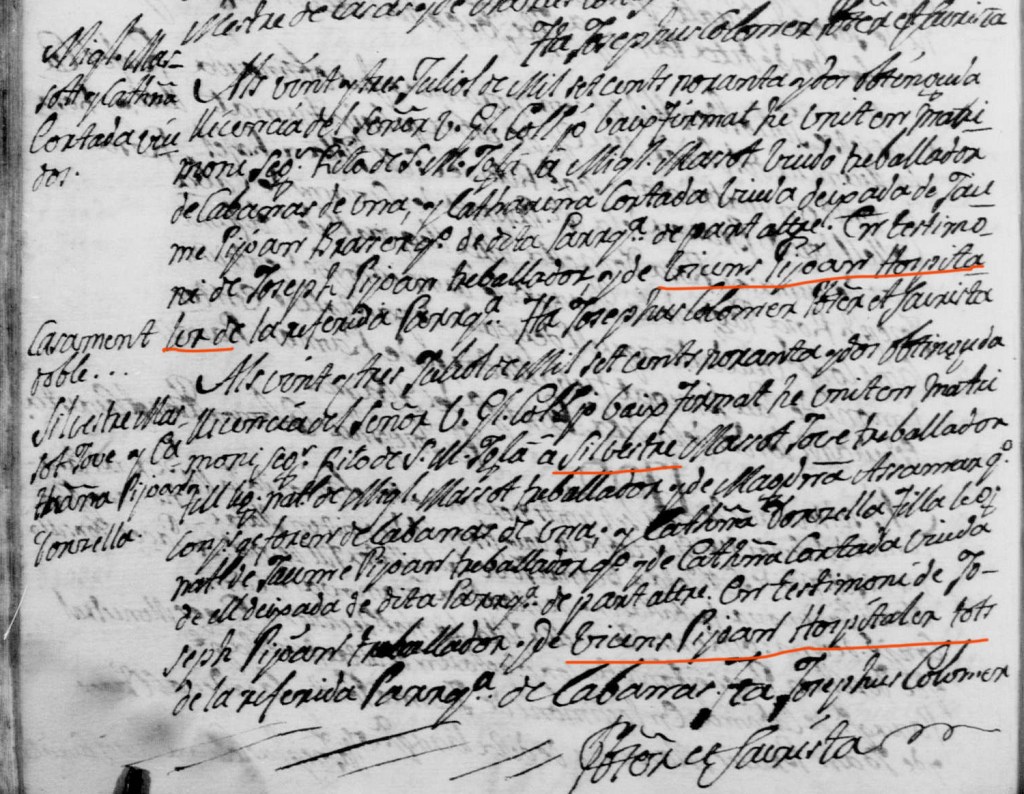 Mestre de casas, y de
Ita Josephus Colomer Pbter et Sacrista
Migl. Mas-
sot y Cathña
Cortada viu
dos.
Als vint y tres Juliol de Mil set cents noranta y dos obtinguda
llicencia del Señor V. Gl. Coll jo baix firmat he unit en Matri
moni seg.r Rito de S. M. Igla â Migl. Massot Viudo treballador
de Cabanas de una, y Catharina Cortada Viuda deixada de Jau
me Pijoan Bracer q.o de dita Parrq.a de part altre. En testimo-
ni de Joseph Pijoan treballador, y de Vicens Pijoan Hospita
ler de la referida Parrq.a Ita Josephus Colomer Pbter et Sacrista
Casament
doble...
Silvestre Mas-
sot Jove y Ca
tharina Pijoan
Donzella.
Als vint y tres Juliol de Mil set cents noranta y dos obtinguda
llicencia del Señor V. Gl. Coll jo baix firmat he unit en Matri
moni seg.r Rito de S. M. Igla â Silvestre Massot Jove treballador
fill llg. nat. de Migl. Massot treballador y de Magdña Arramar q.o
conj. q foren de Cabanas de una; y Cathña Donzella filla leg.
nat. de Jaume Pijoan treballador q.o y de Cathña Cortada Viuda
de ell deixada de dita Parrq.a de part altre. En testimoni de Jo-
seph Pijoan treballador y de Vicens Pijoan Hospitaler tots
de la referida Parrq.a de Cabanas. Ita Josephus Colomer
Pbter et Sacrista